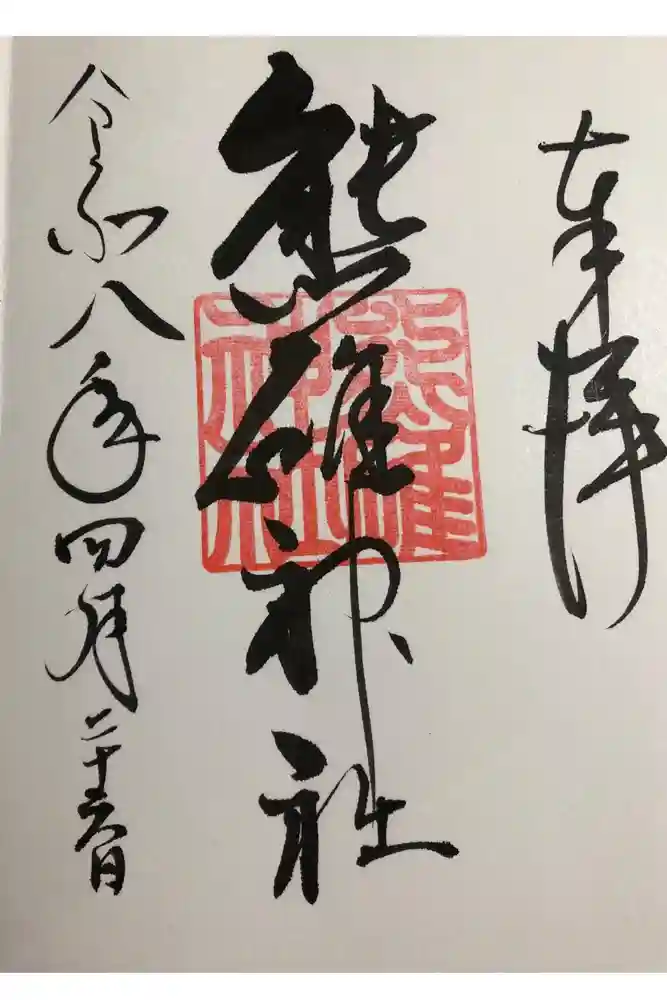 奉拝
熊碓神社
熊碓神社
令和八年四月二十六日